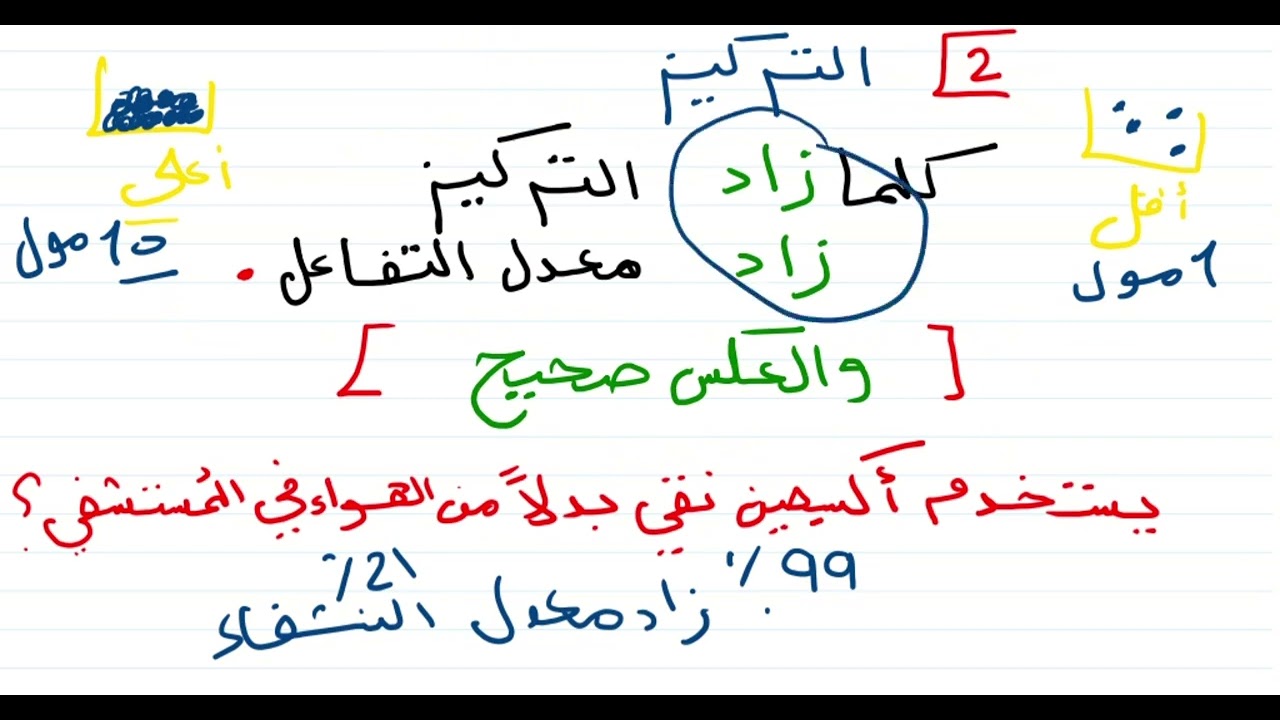 2 التركيز
كلما زاد التركيز
زاد معدل التفاعل .
[ والعكس صحيح ]
أقل
1 مول
أعلى
10 مول
يستخدم أكسجين نقي بدلاً من الهواء في المُستشفى ؟
99٪ 21٪
زاد معدل الشفاء